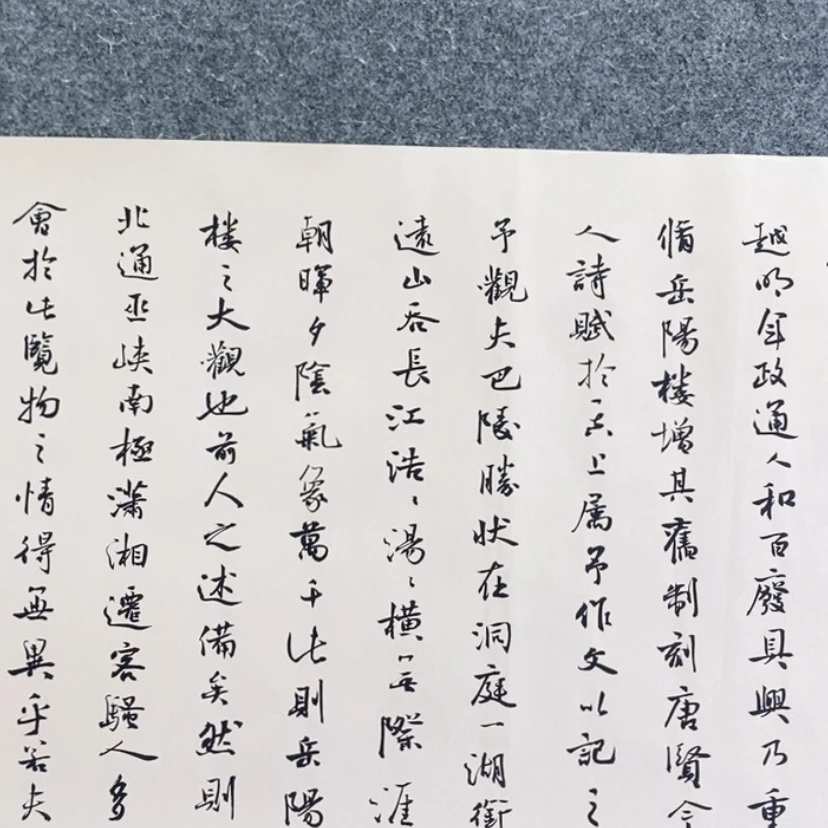 越明年政通人和百廢具興乃重
脩岳陽樓增其舊制刻唐賢今
人詩賦於其上属予作文以記之
予觀夫巴陵勝狀在洞庭一湖銜
遠山吞長江浩〻湯〻橫無際涯
朝暉夕陰氣象萬千此則岳陽
樓之大觀也前人之述備矣然則
北通巫峽南極瀟湘遷客騷人多
會於此覽物之情得無異乎若夫